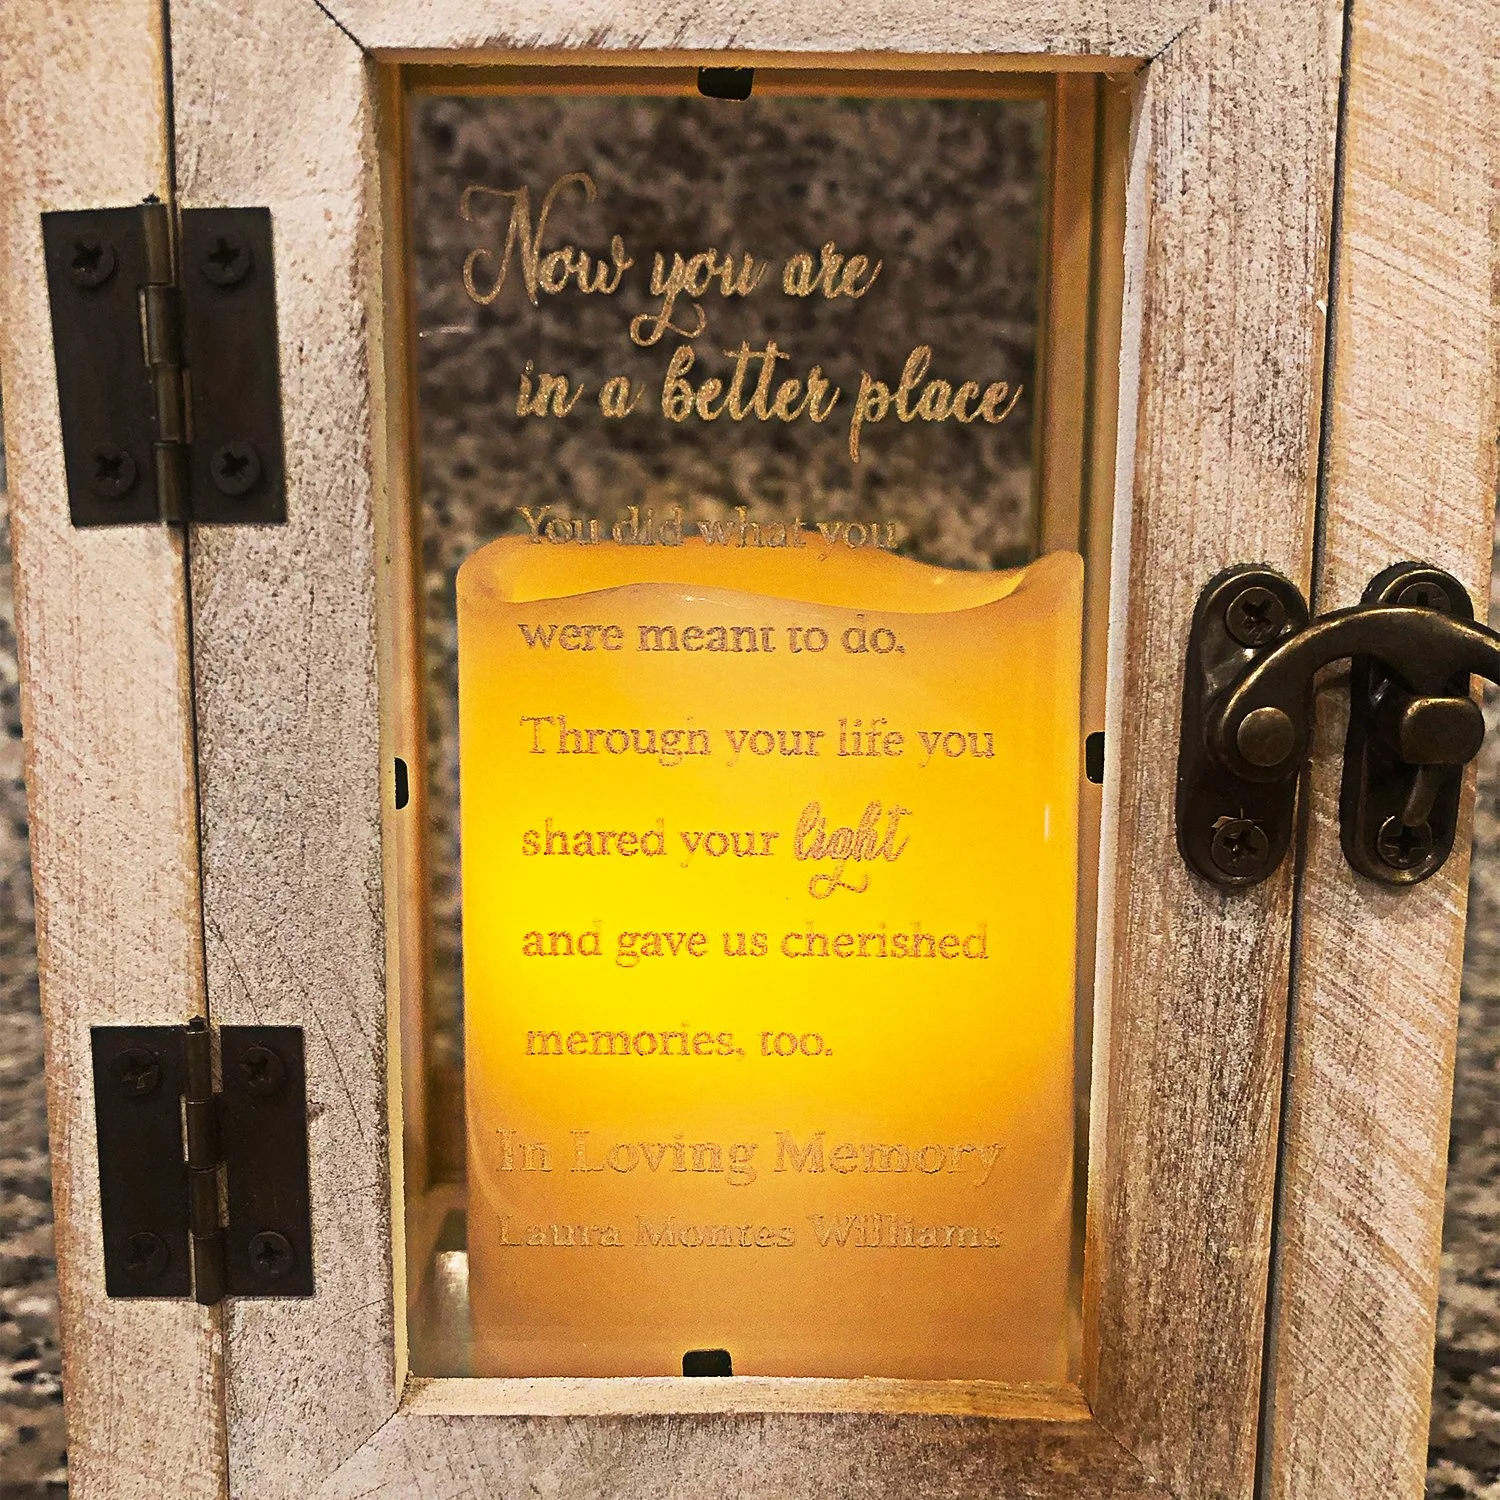 Now you are
in a better place
You did what you
were meant to do.
Through your life you
shared your light
and gave us cherished
memories, too.
In Loving Memory
Laura Montes Williams